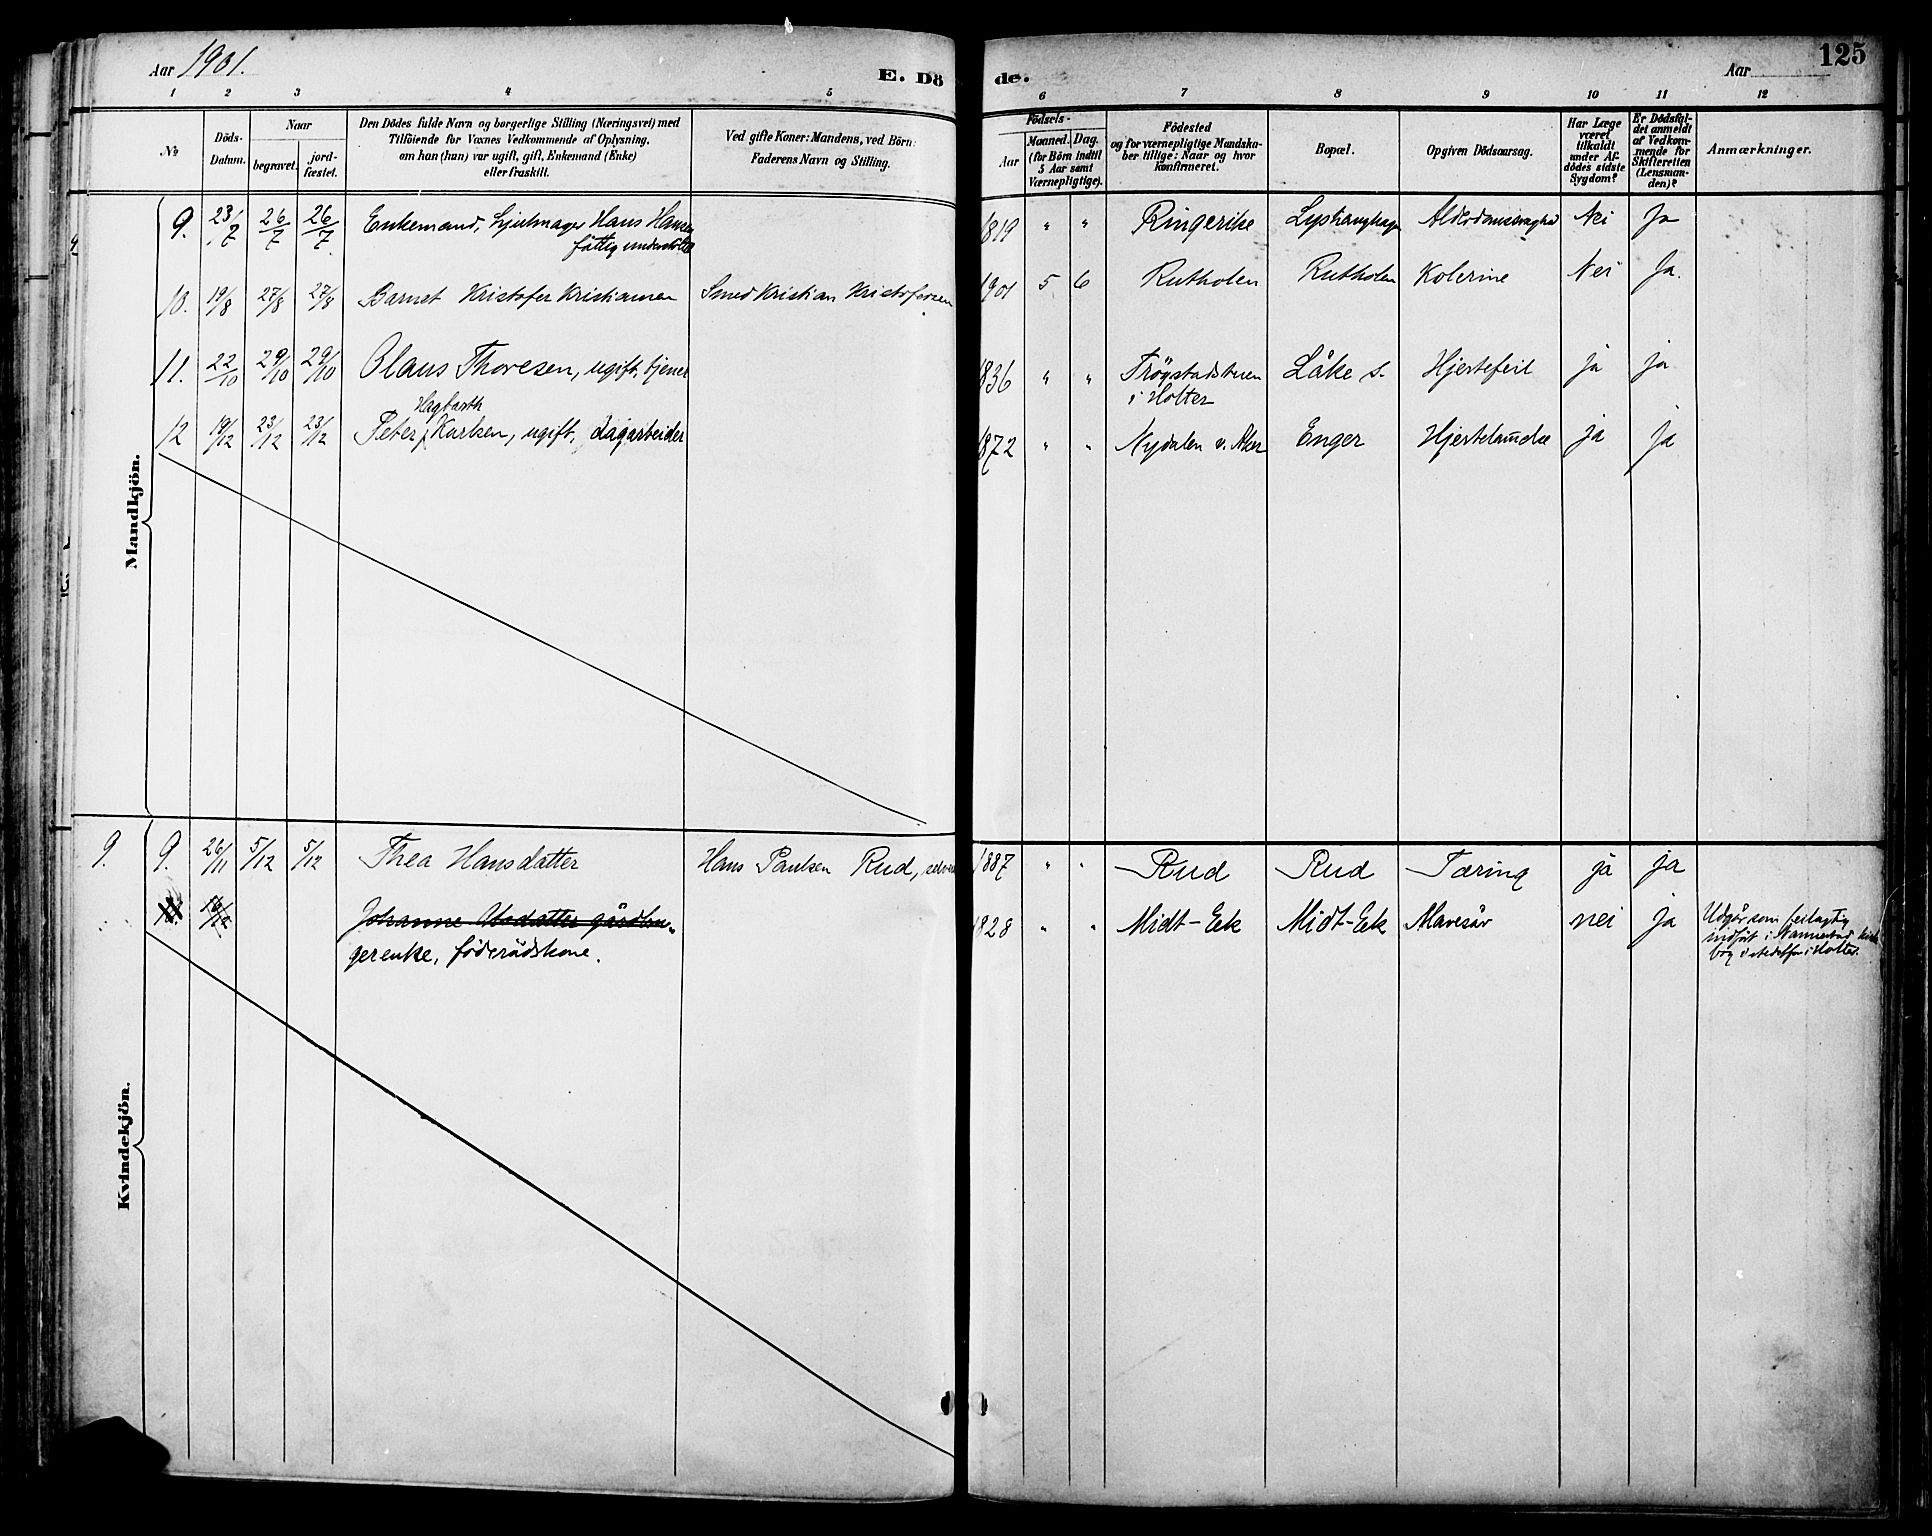 Aar 1901. E. Dö de. Aar 125
1 2 3 4 5 6 7 8 9 10 11 12
№ Döds-Datum. Naar begravet. jord-fæstet.
Den Dödes fulde Navn og borgerlige Stilling (Næringsvei) med
Tilföiende for Voxnes Vedkommende af Oplysning,
om han (hun) var ugift, gift, Enkemand (Enke)
eller fraskilt.
Ved gifte Koner: Mandens, ved Börn:
Faderens Navn og Stilling.
Födsels-
Aar Maaned. Dag.
(for Börn indtil
5 Aar samt
Værnepligtige).
Födested
og for værnepligtige Mandska-
ber tillige: Naar og hvor
konfirmeret.
Bopæl.
Opgiven Dödsaarsag.
Har Læge
været
tilkaldt
under Af-
dödes sidste
Sygdom?
Er Dödsfal-
det anmeldt
af Vedkom-
mende for
Skifteretten
(Lensman-
den)?
Anmærkninger.
Mandkjön.
9. 23/7 26/7 26/7 Enkemand, hjulmager Hans Hansen 1819 " " Ringerike Lyshaughagen Alderdomssvaghed Nei Ja
fattigunderstöttet
10. 19/8 27/8 27/8 Barnet Kristofer Kristiansen Smed Kristian Kristofersen 1901 5 6 Rutholen Rutholen Kolerine Nei Ja.
11. 22/10 29/10 29/10 Olaus Thoresen, ugift, tjener 1836 " " Tröystadstuen Låke s. Hjertefeil ja ja
i Holter
Hagbarth
12 19/12 23/12 23/12 Peter Karlsen, ugift, dagarbeider 1872 " " Nydalen v. Aker Enger Hjertelamelse ja ja
Kvindekjön.
9. 9. 26/11 5/12 5/12 Thea Hansdatter Hans Paulsen Rud, 1887 " " Rud Rud Tæring ja ja
16/12 Johanne gårdbru-
gerenke, föderådskone. 1828 " " Midt-Eek Midt-Eek Mavesår nei ja
Udgår som feilagtig
indfört i Nannestad kirke
bog i stedetfor i Holter.